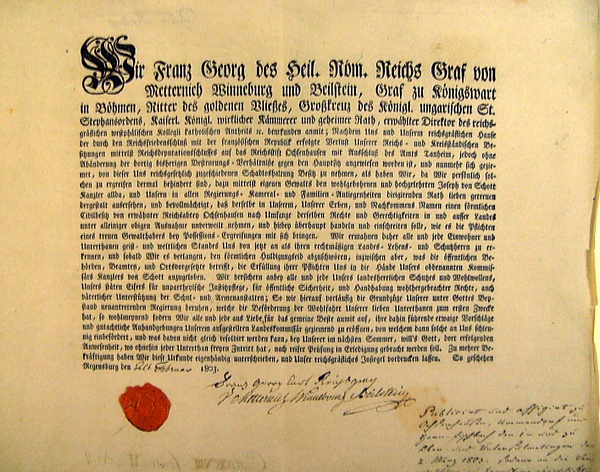 Wir Franz Georg des Heil. Röm. Reichs Graf von
Metternich Winneburg und Beilstein, Graf zu Königswart
in Böhmen, Ritter des goldenen Vließes, Großkreuz des Königl. ungarischen St.
Stephansordens, Kaiserl. Königl. wirklicher Kämmerer und geheimer Rath, erwählter Director des reichs-
gräflichen westphälischen Kollegii katholischen Antheils ꝛc. beurkunden anmit; Nachdem Uns und Unserem reichsgräflichen Hause
der durch den Reichsfriedensschluß mit der französischen Republik erfolgte Verlust Unserer Reichs- und Kreisständischen Be-
sitzungen mittelst Reichsdeputationsschlusses auf das Reichsstift Ochsenhausen mit Ausschluß des Amts Tanheim, jedoch ohne
Abänderung der dortig bisherigen Besteurungs-Verhältnisse gegen den Hauptsitz angewiesen worden ist, und nunmehr sich gezie-
met, von dieser Uns reichsgesetzlich zugeschiedenen Schadloshaltung Besitz zu nehmen, als haben Wir, da Wir persönlich sol-
chen zu ergreifen dermal behindert sind, dazu mittelst eigenen Gewalts den wohlgebohrnen und hochgelehrten Joseph von Schott
Kanzler allda, und Unseren in allen Regierungs- Kameral- und Familien-Angelegenheiten dirigirenden Rath lieben getreuen
dergestalt ausersehen, und bevollmächtigt, daß derselbe in Unserem, Unserer Erben, und Nachkommens Namen einen förmlichen
Civilbesitz von erwähnter Reichsabtey Ochsenhausen nach Umfange derselben Rechte und Gerechtigkeiten in und ausser Landes
unter alleiniger obigen Ausnahme unverweilt nehmen, und hiebey überhaupt handeln und einschreiten solle, wie es die Pflichten
eines treuen Gewalthabers bey Possessions-Ergreifungen mit sich bringen. Wir ermahnen daher alle und jede Einwohner und
Unterthanen geist- und weltlichen Standes Uns von jetzt an als ihren rechtmäßigen Landes- Lehens- und Schutzherrn zu er-
kennen, und sobald Wir es verlangen, den förmlichen Huldigungseid abzuschwören, inzwischen aber, was die öffentlichen Be-
hörden, Beamten, und Ortsvorgesetzte betrifft, die Erfüllung ihrer Pflichten Uns in die Hände Unsers obbenannten Kommis-
särs Kanzlers von Schott anzugeloben. Wir versichern anbey alle und jede Unsers landesherrlichen Schutzes und Wohlwollens,
Unsers stäten Eifers für unpartheyische Justizpflege, für öffentliche Sicherheit, und Handhabung wohlhergebrachter Rechte, auch
väterlicher Unterstützung der Schul- und Armenanstalten; So wie hierauf vorläufig die Grundzüge Unserer unter Gottes Bey-
stand neuantretenden Regierung beruhen, welche die Beförderung der Wohlfahrt Unserer lieben Unterthanen zum ersten Zwecke
hat, so wohlmeynend fodern Wir alle und jede aus Liebe für das gemeine Beste anmit auf, ihre dahin führende etwaige Vorschläge
und gutachtliche Anhandgebungen Unserem aufgestellten Landeskommissär geziemend zu eröffnen, von welchem dann solche an Uns schleu-
nig einbefördert, und was davon nicht gleich resolvirt werden kann, bey Unserem im nächsten Sommer, will's Gott, dort erfolgenden
Anwesenheit, wo ohnehin jeder Unterthan freyen Zutritt hat, nach reifer Prüfung in Erledigung gebracht werden soll. Zu mehrer Be-
kräftigung haben Wir diese Urkunde eigenhändig unterschrieben, und Unser reichsgräfliches Insiegel vordrucken lassen. So geschehen
Regensburg den Februar 1803.
Franz Georg Carl Reichsgraf
v Metternich Winneburg Beilstein
Publicirt und affigirt zu
Ochsenhausen, Ummendorf und
den in und zu
Ober und Untersulmetingen den
2. März 1803.